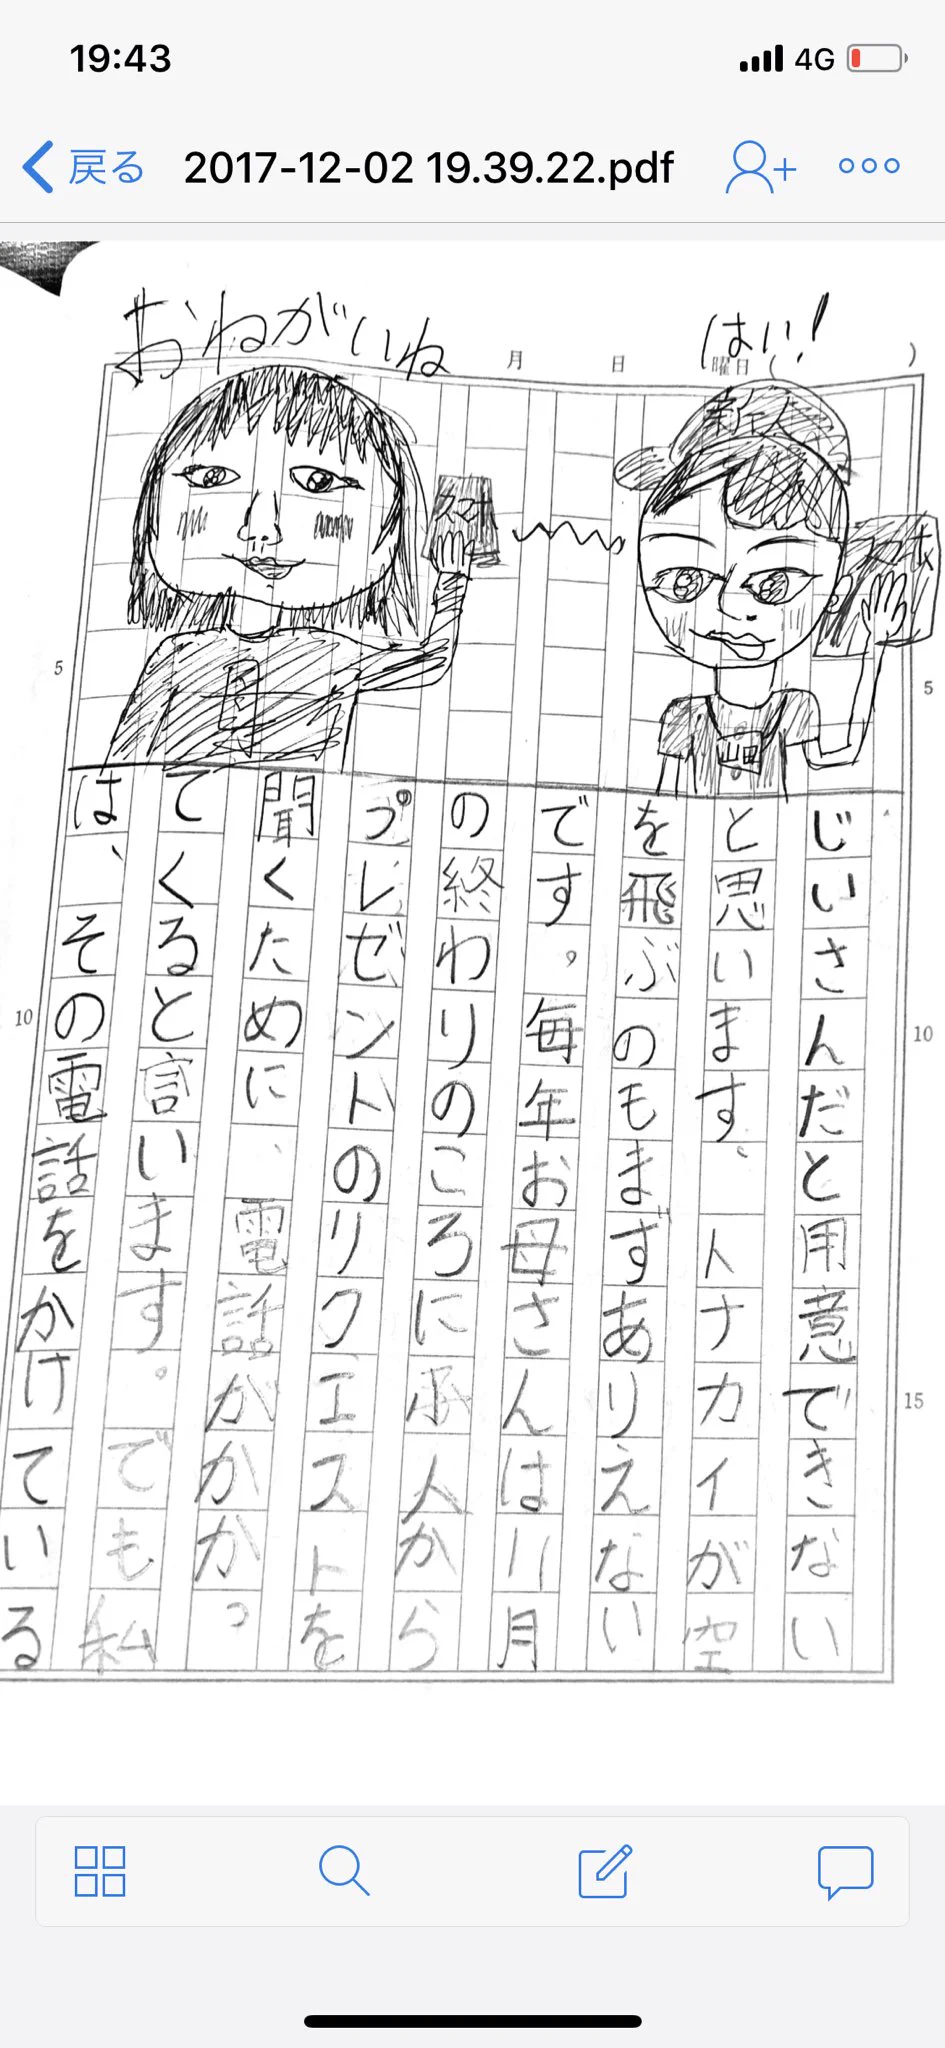 19:43
4G
戻る
2017-12-02 19.39.22.pdf
おねがいね
はい!
月 日 曜日 ( )
新人
スマホ
スマホ
山田
5
5
10
10
15
じいさんだと用意できない
と思います。トナカイが空
を飛ぶのもまずありえない
です。毎年お母さんは11月
の終わりのころに 人から
プレゼントのリクエストを
聞くために、電話がかかっ
てくると言います。でも私
は、その電話をかけている